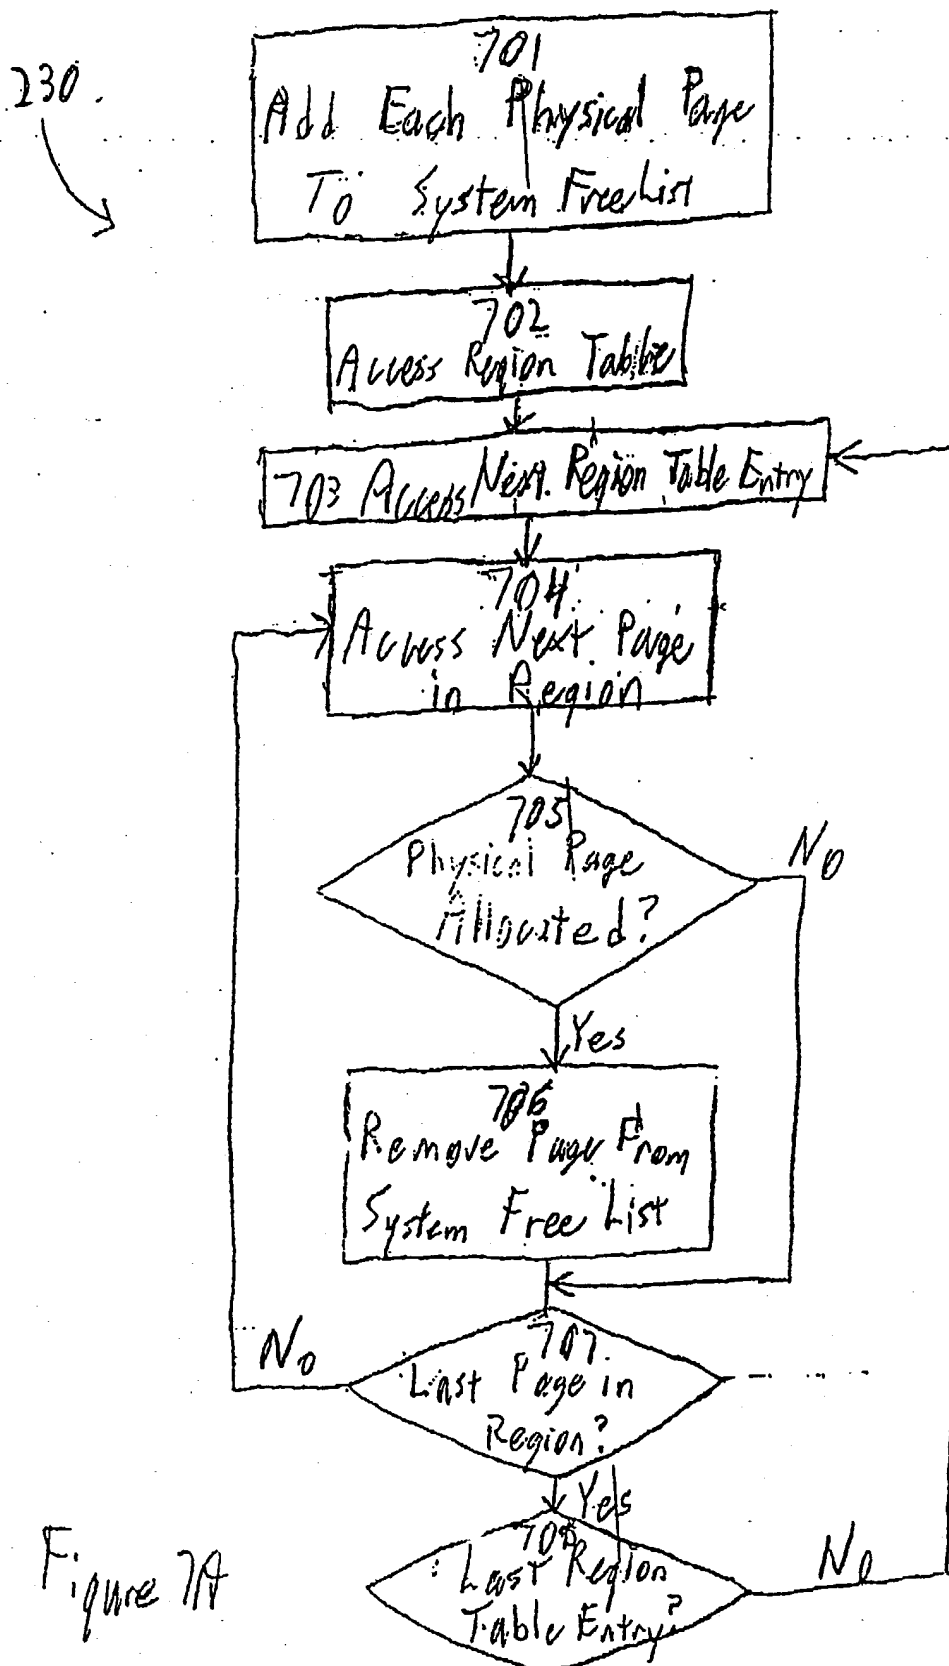 230
701
Add Each Physical Page
To System Free List
702
Access Region Table
703 Access Next Region Table Entry
704
Access Next Page
in Region
705
Physical Page
Allocated?
No
Yes
706
Remove Page From
System Free List
707
Last Page in
Region?
No
Yes
Last Region
Table Entry?
No
Figure 7A